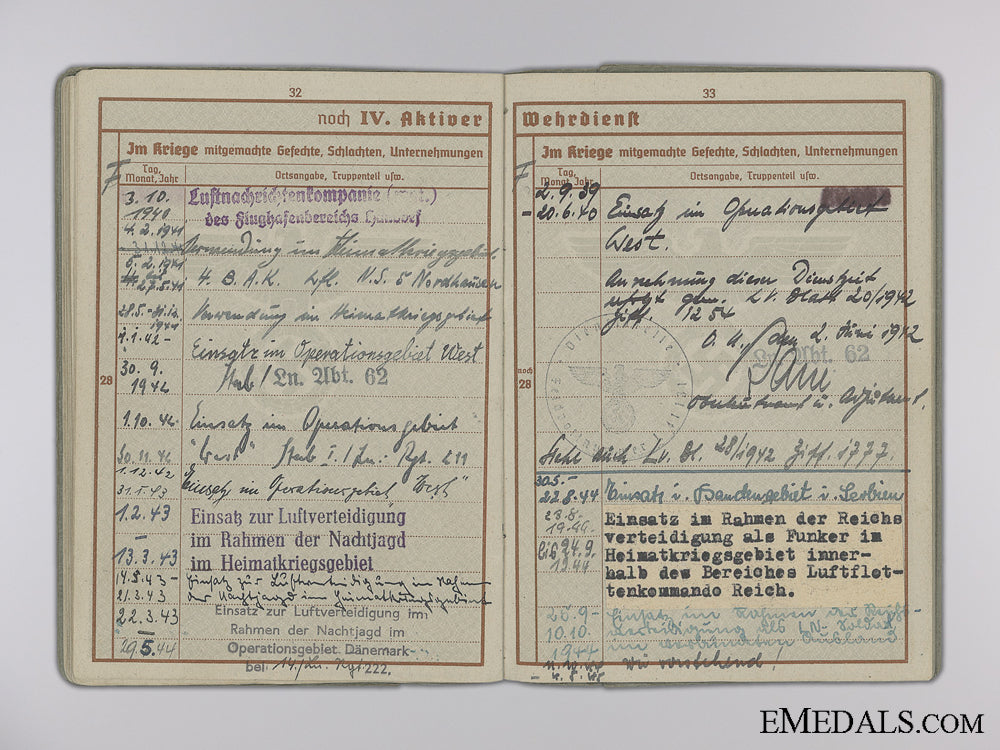 32
noch IV. Aktiver
Im Kriege mitgemachte Gefechte, Schlachten, Unternehmungen
Tag, Monat, Jahr
Ortsangabe, Truppenteil usw.
3. 10. 1940
Luftnachrichtenkompanie
des Flughafenbereichs
4. 2. 1941
Verwendung im Heimatkriegsgebiet
5. 2. 1941
27.5.41
4. B.A.K. Lft. N.S. 5 Nordhausen
28.5.
1941
Verwendung im Heimatkriegsgebiet
1.1.42-
Einsatz im Operationsgebiet West
30. 9. 1942
Stab / Ln. Abt. 62
28
1.10. 42
Einsatz im Operationsgebiet
30.11.42
"West" Stab I. / Ln. Rgt. 211
1.12.42
31.1.43
Einsatz im Operationsgebiet "West"
1.2.43
Einsatz zur Luftverteidigung
im Rahmen der Nachtjagd
13.3.43
im Heimatkriegsgebiet
14.3.43-
Einsatz zur Luftverteidigung im Rahmen
21.3.43
der Nachtjagd im Heimatkriegsgebiet
22.3.43
Einsatz zur Luftverteidigung im
Rahmen der Nachtjagd im
29.5.44
Operationsgebiet Dänemark-
bei 14./Ln. Rgt 222.
33
Wehrdienst
Im Kriege mitgemachte Gefechte, Schlachten, Unternehmungen
Tag, Monat, Jahr
Ortsangabe, Truppenteil usw.
2.9.39
-20.6.40
Einsatz im Operationsgebiet
West.
Anrechnung dieser Dienstzeit
erfolgt gem. L.V. Blatt 20/1942
Ziff. 1254
O. U., den 2. Juni 1942
Ln. Abt. 62
noch 28
Oberleutnant u. Adjutant.
Siehe auch L.v. Bl. 28/1942 Ziff. 1777.
30.5.-
22.8.44
Einsatz i. Bandengebiet i. Serbien
23.8.-
19.44
bis 24.9.
1944
Einsatz im Rahmen der Reichs
verteidigung als Funker im
Heimatkriegsgebiet inner-
halb des Bereiches Luftflot-
tenkommando Reich.
10.10.
1944
Einsatz im Rahmen der Reichs-
verteidigung als LN-Soldat
wie vorstehend.
EMEDALS.COM